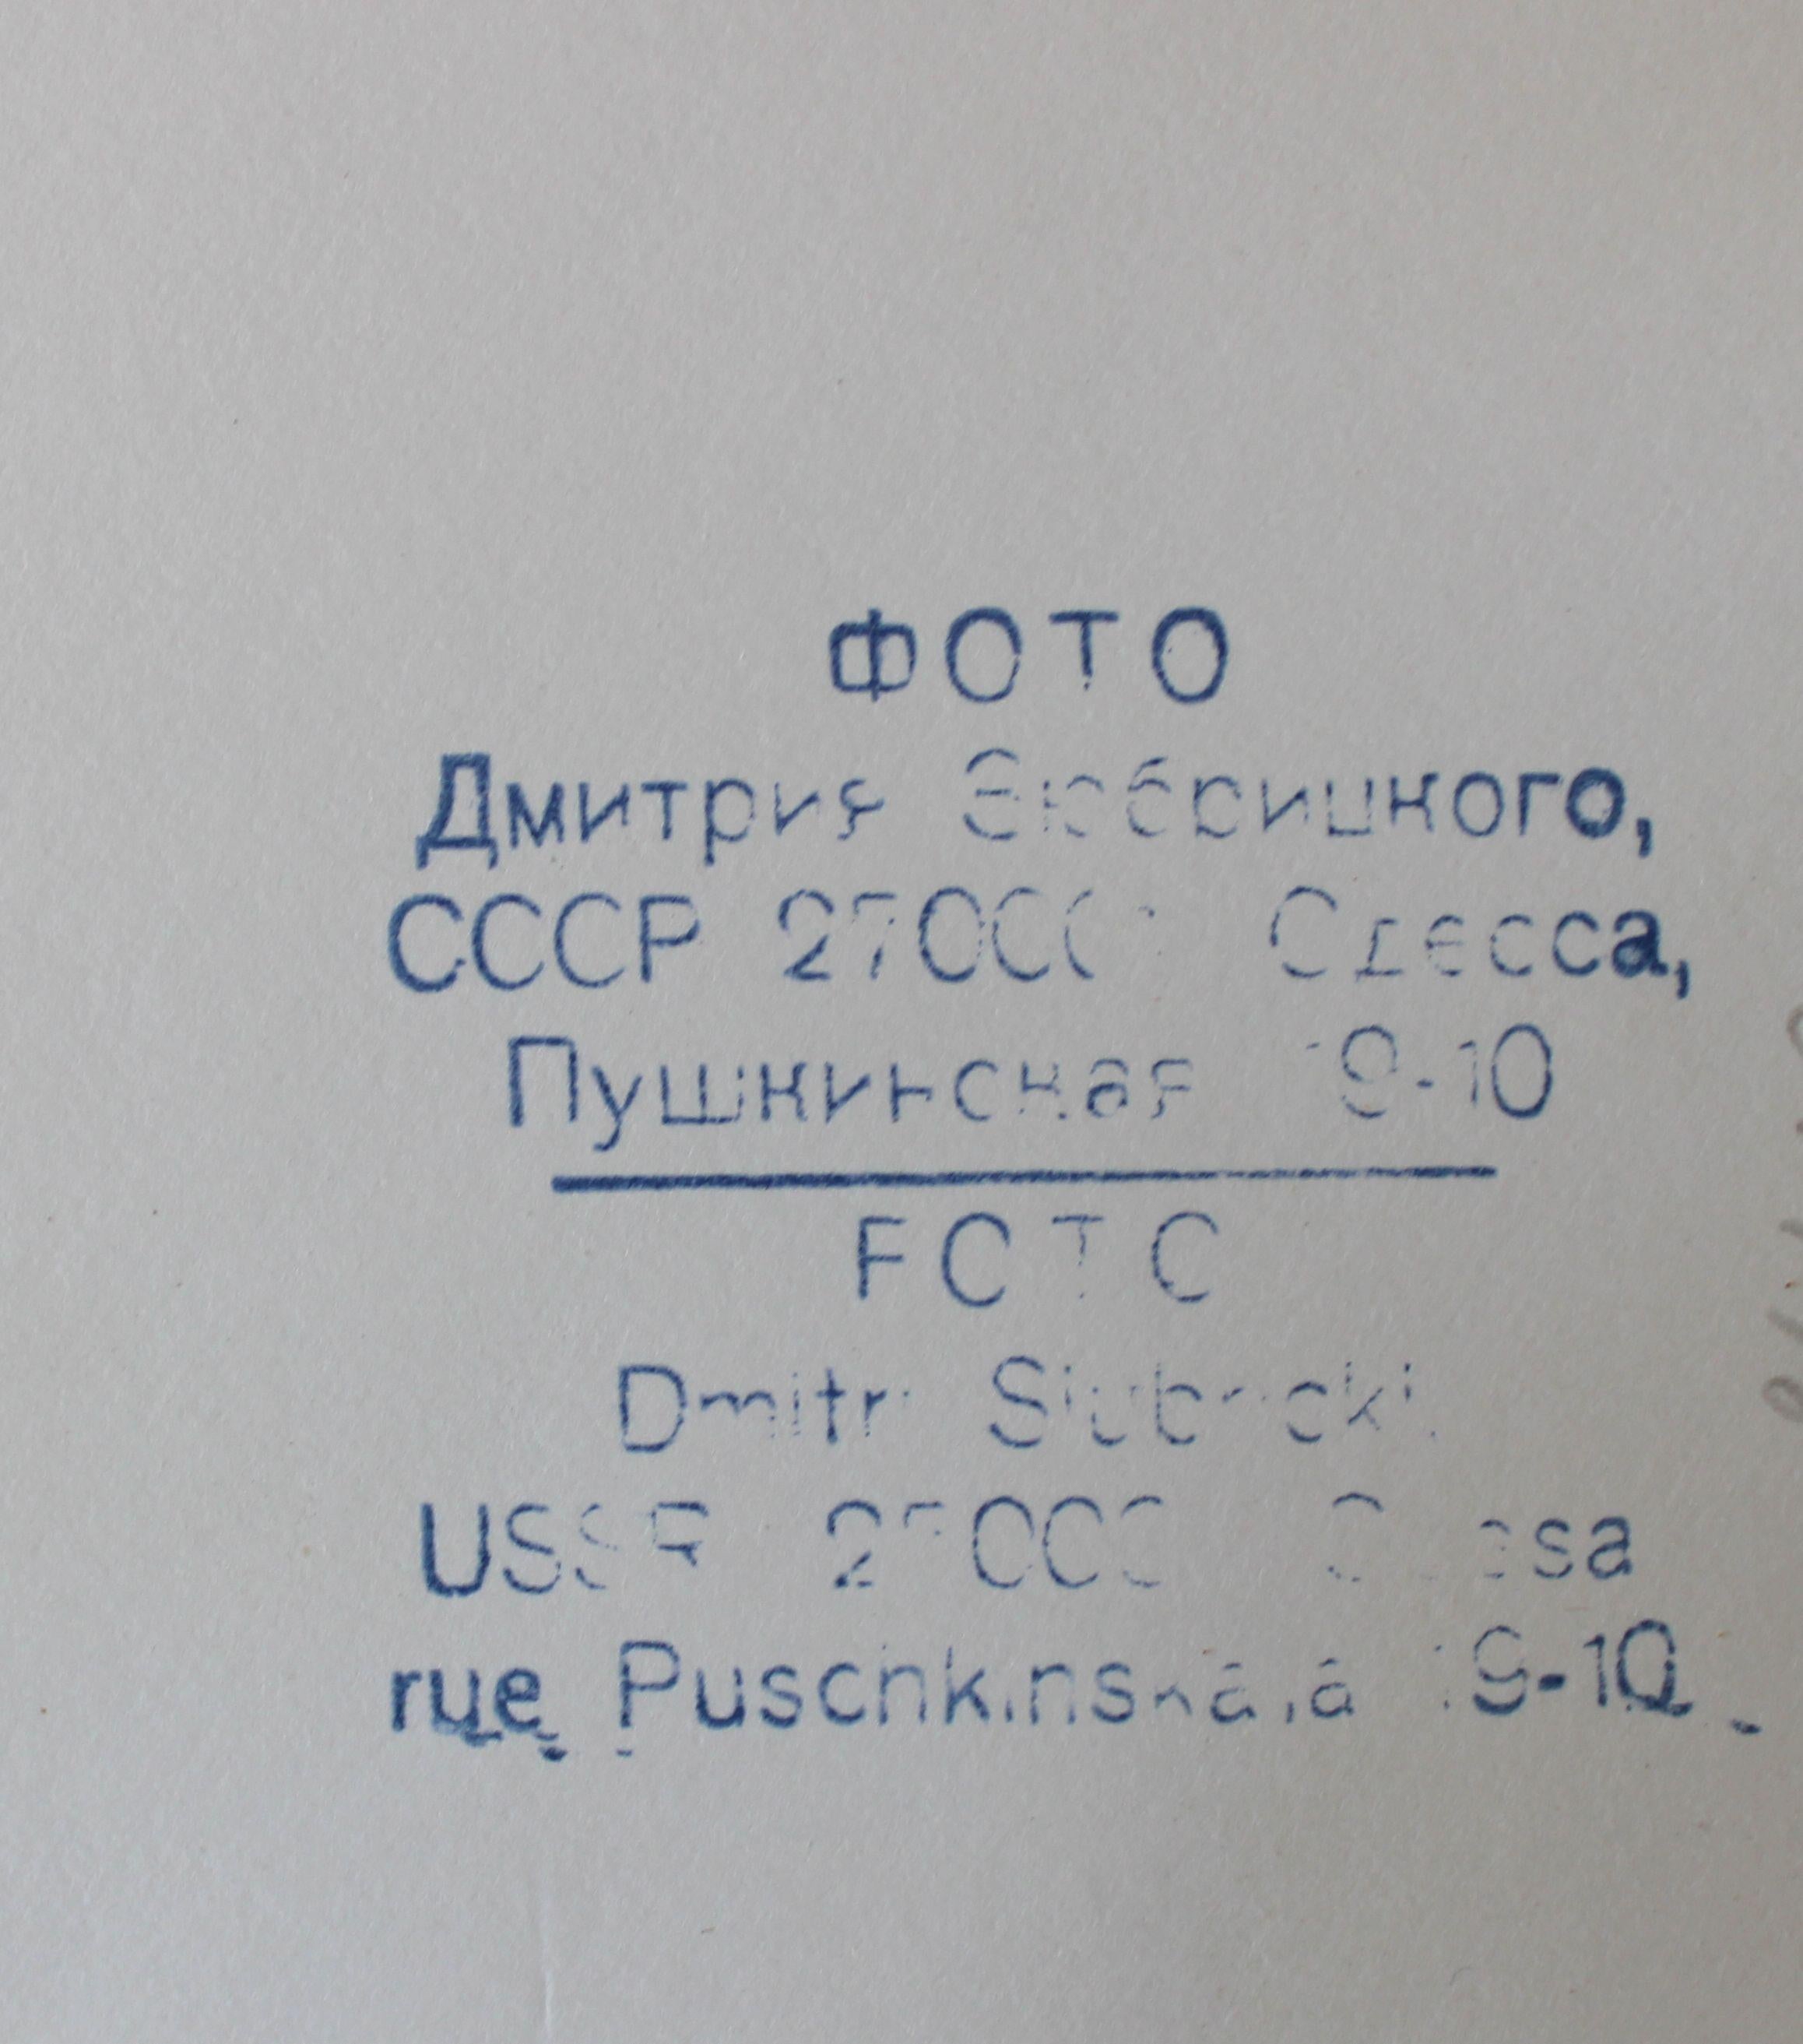 ФОТО
Дмитрия Зюбрицкого,
СССР Одесса,
Пушкинская 19-10
FOTO
Dmitri Siubricki.
USSR
rue Puschkinskaia 19-10